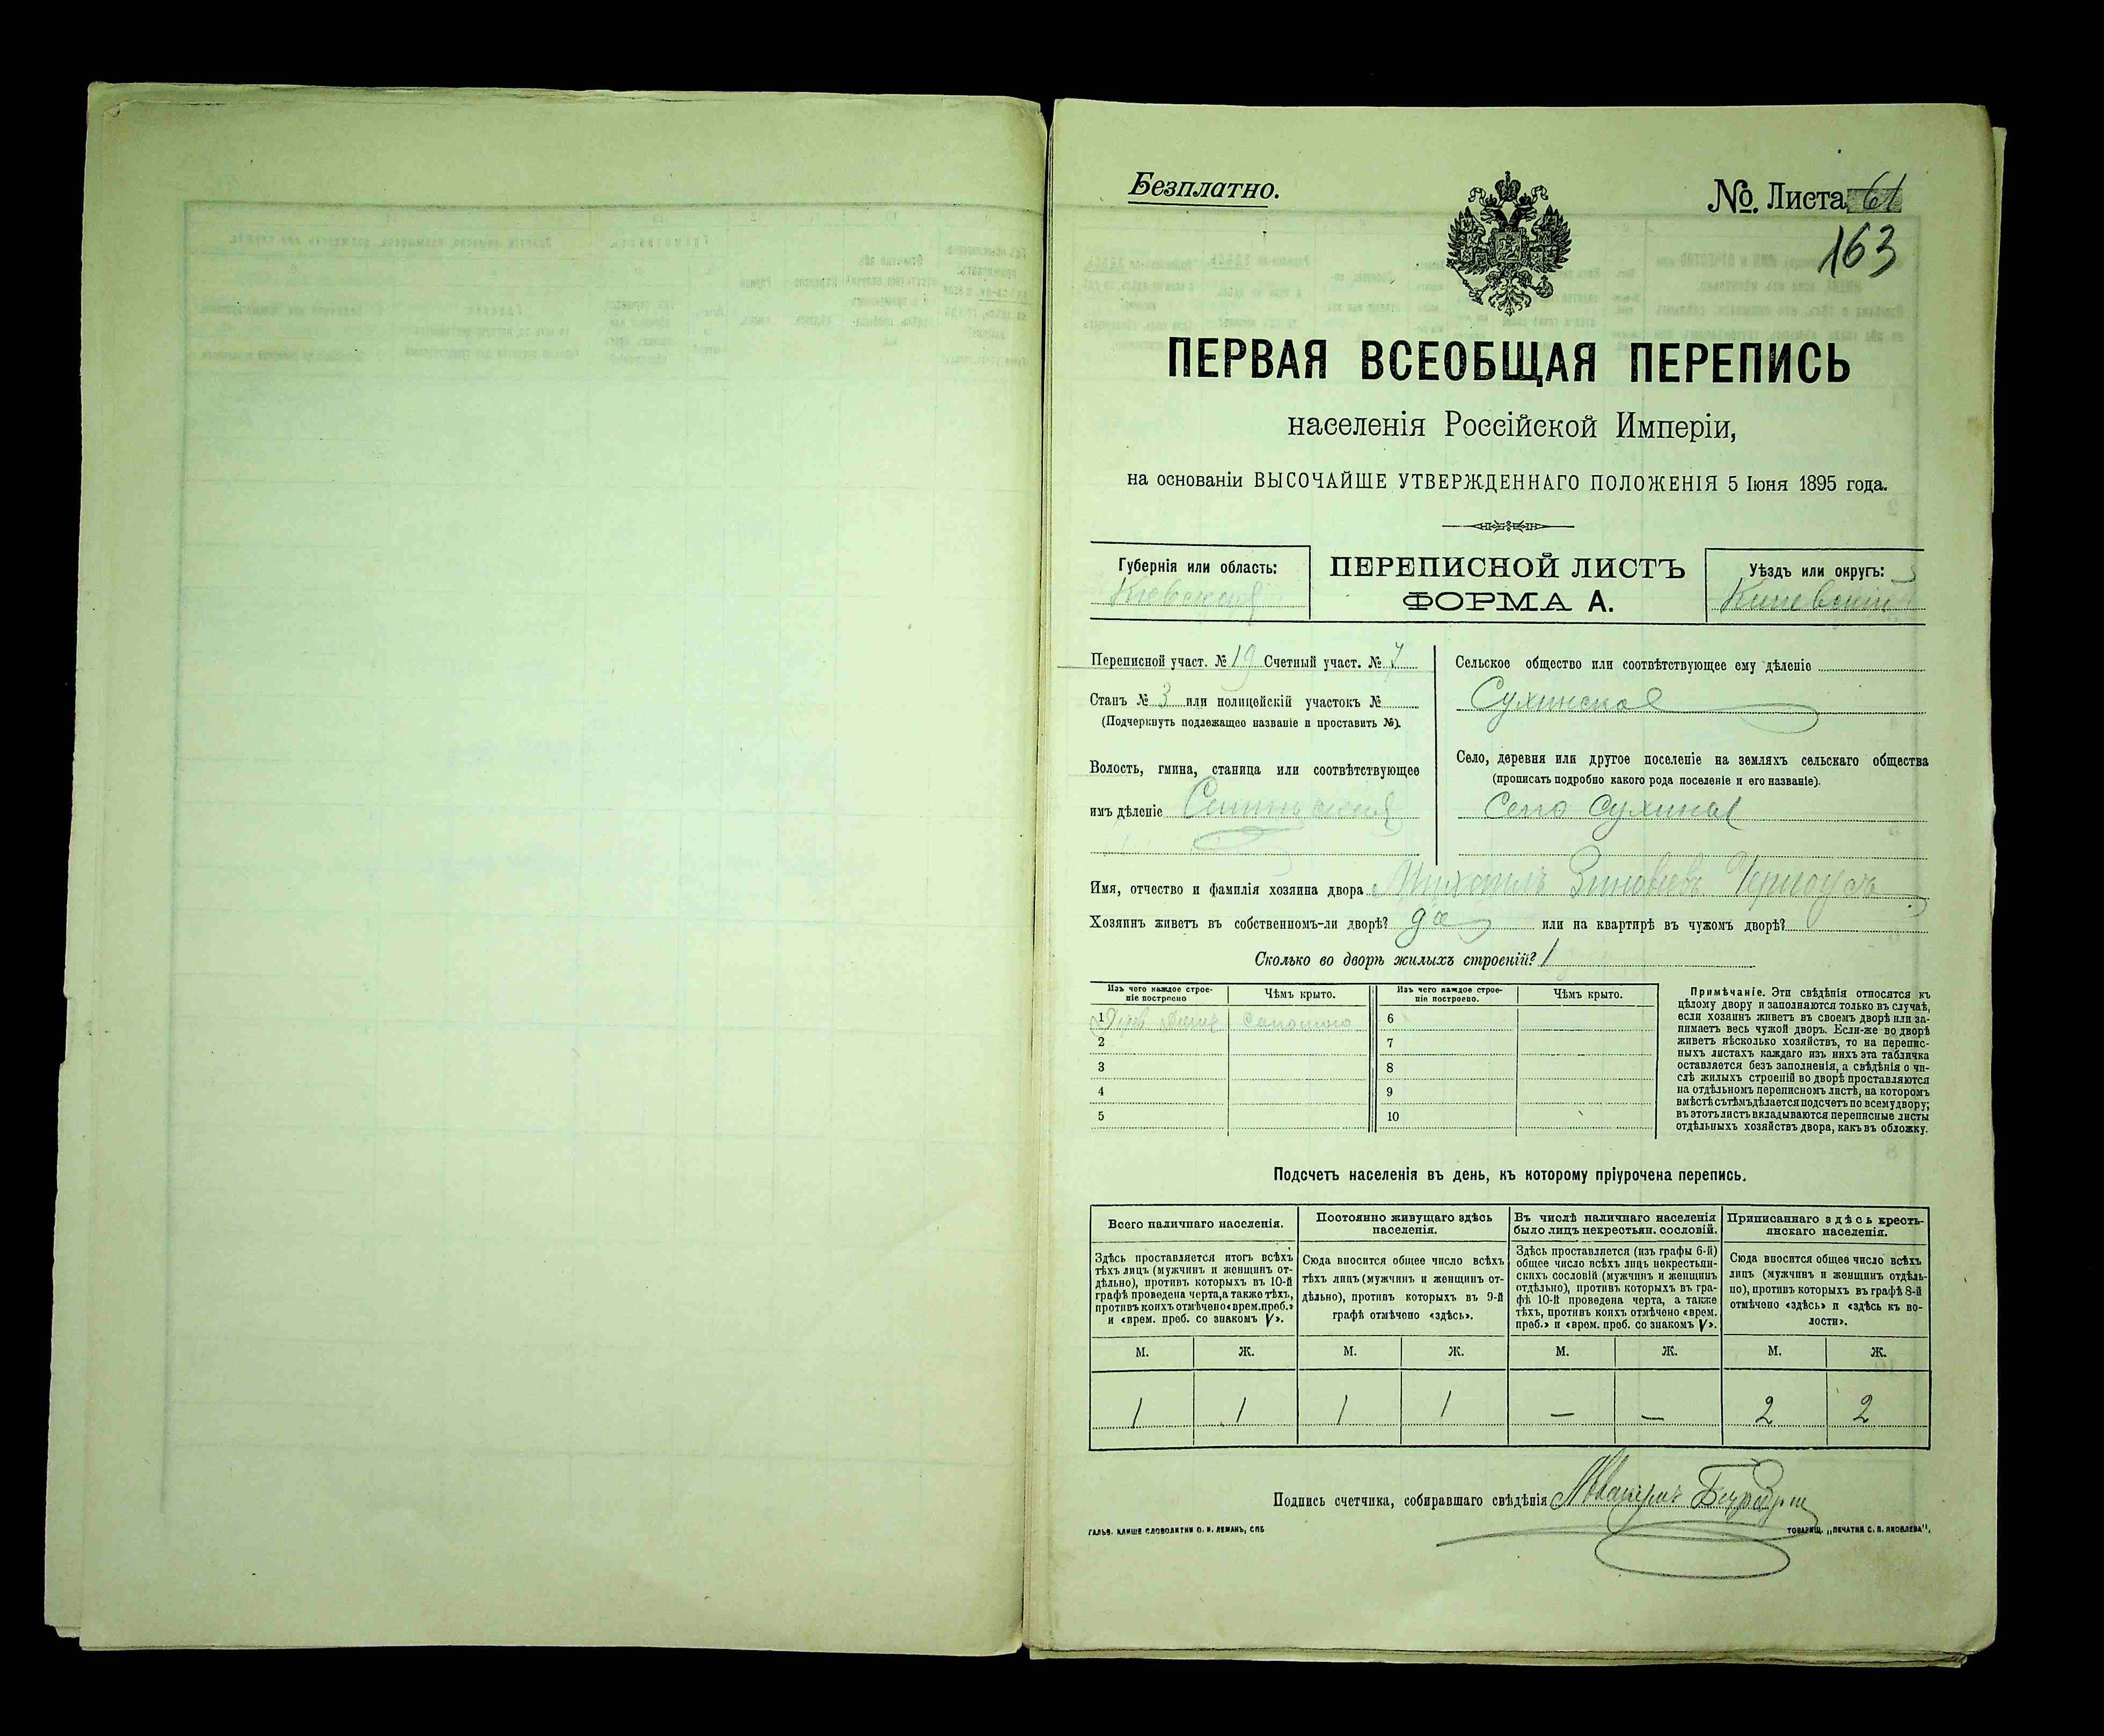 Безплатно.
№. Листа 61
163
ПЕРВАЯ ВСЕОБЩАЯ ПЕРЕПИСЬ
населенія Россійской Имперіи,
на основаніи ВЫСОЧАЙШЕ УТВЕРЖДЕННАГО ПОЛОЖЕНІЯ 5 Іюня 1895 года.
Губернія или область:
Кіевская
ПЕРЕПИСНОЙ ЛИСТЪ
ФОРМА А.
Уѣздъ или округъ:
Переписной участ. № 19 Счетный участ. № 7
Станъ № 3 или полицейскій участокъ №
(Подчеркнуть подлежащее названіе и проставить №).
Волость, гмина, станица или соотвѣтствующее
имъ дѣленіе
Сельское общество или соотвѣтствующее ему дѣленіе
Сухинское
Село, деревня или другое поселеніе на земляхъ сельскаго общества
(прописать подробно какого рода поселеніе и его названіе).
Село Сухины
Имя, отчество и фамилія хозяина двора Михаилъ Зиновіевъ
Хозяинъ живетъ въ собственномъ-ли дворѣ? да или на квартирѣ въ чужомъ дворѣ?
Сколько во дворѣ жилыхъ строеній? 1
Изъ чего каждое строе-
ніе построено
Чѣмъ крыто.
Изъ чего каждое строе-
ніе построено.
Чѣмъ крыто.
1 Соломою 6
2 7
3 8
4 9
5 10
Примѣчаніе. Эти свѣдѣнія относятся къ
цѣлому двору и заполняются только въ случаѣ,
если хозяинъ живетъ въ своемъ дворѣ или за-
нимаетъ весь чужой дворъ. Если-же во дворѣ
живетъ нѣсколько хозяйствъ, то на перепис-
ныхъ листахъ каждаго изъ нихъ эта табличка
оставляется безъ заполненія, а свѣдѣнія о чи-
слѣ жилыхъ строеній во дворѣ проставляются
на отдѣльномъ переписномъ листѣ, на которомъ
вмѣстѣ съ тѣмъ дѣлается подсчетъ по всему двору;
въ этотъ листъ вкладываются переписные листы
отдѣльныхъ хозяйствъ двора, какъ въ обложку.
Подсчетъ населенія въ день, къ которому пріурочена перепись.
Всего наличнаго населенія.
Здѣсь проставляется итогъ всѣхъ
тѣхъ лицъ (мужчинъ и женщинъ от-
дѣльно), противъ которыхъ въ 10-й
графѣ проведена черта, а также тѣхъ,
противъ коихъ отмѣчено «врем. преб.»
и «врем. преб. со знакомъ V».
Постоянно живущаго здѣсь
населенія.
Сюда вносится общее число всѣхъ
тѣхъ лицъ (мужчинъ и женщинъ от-
дѣльно), противъ которыхъ въ 9-й
графѣ отмѣчено «здѣсь».
Въ числѣ наличнаго населенія
было лицъ некрестьян. сословій.
Здѣсь проставляется (изъ графы 6-й)
общее число всѣхъ лицъ некрестьян-
скихъ сословій (мужчинъ и женщинъ
отдѣльно), противъ которыхъ въ гра-
фѣ 10-й проведена черта, а также
тѣхъ, противъ коихъ отмѣчено «врем.
преб.» и «врем. преб. со знакомъ V».
Приписаннаго здѣсь кресть-
янскаго населенія.
Сюда вносится общее число всѣхъ
лицъ (мужчинъ и женщинъ отдѣль-
но), противъ которыхъ въ графѣ 8-й
отмѣчено «здѣсь» и «здѣсь къ во-
лости».
М. Ж. М. Ж. М. Ж. М. Ж.
1 1 1 1 — — 2 2
Подпись счетчика, собиравшаго свѣдѣнія
ГАЛЬВ. КЛИШЕ СЛОВОЛИТНИ О. И. ЛЕМАНЪ, СПБ
ТОВАРИЩ. „ПЕЧАТНЯ С. П. ЯКОВЛЕВА".